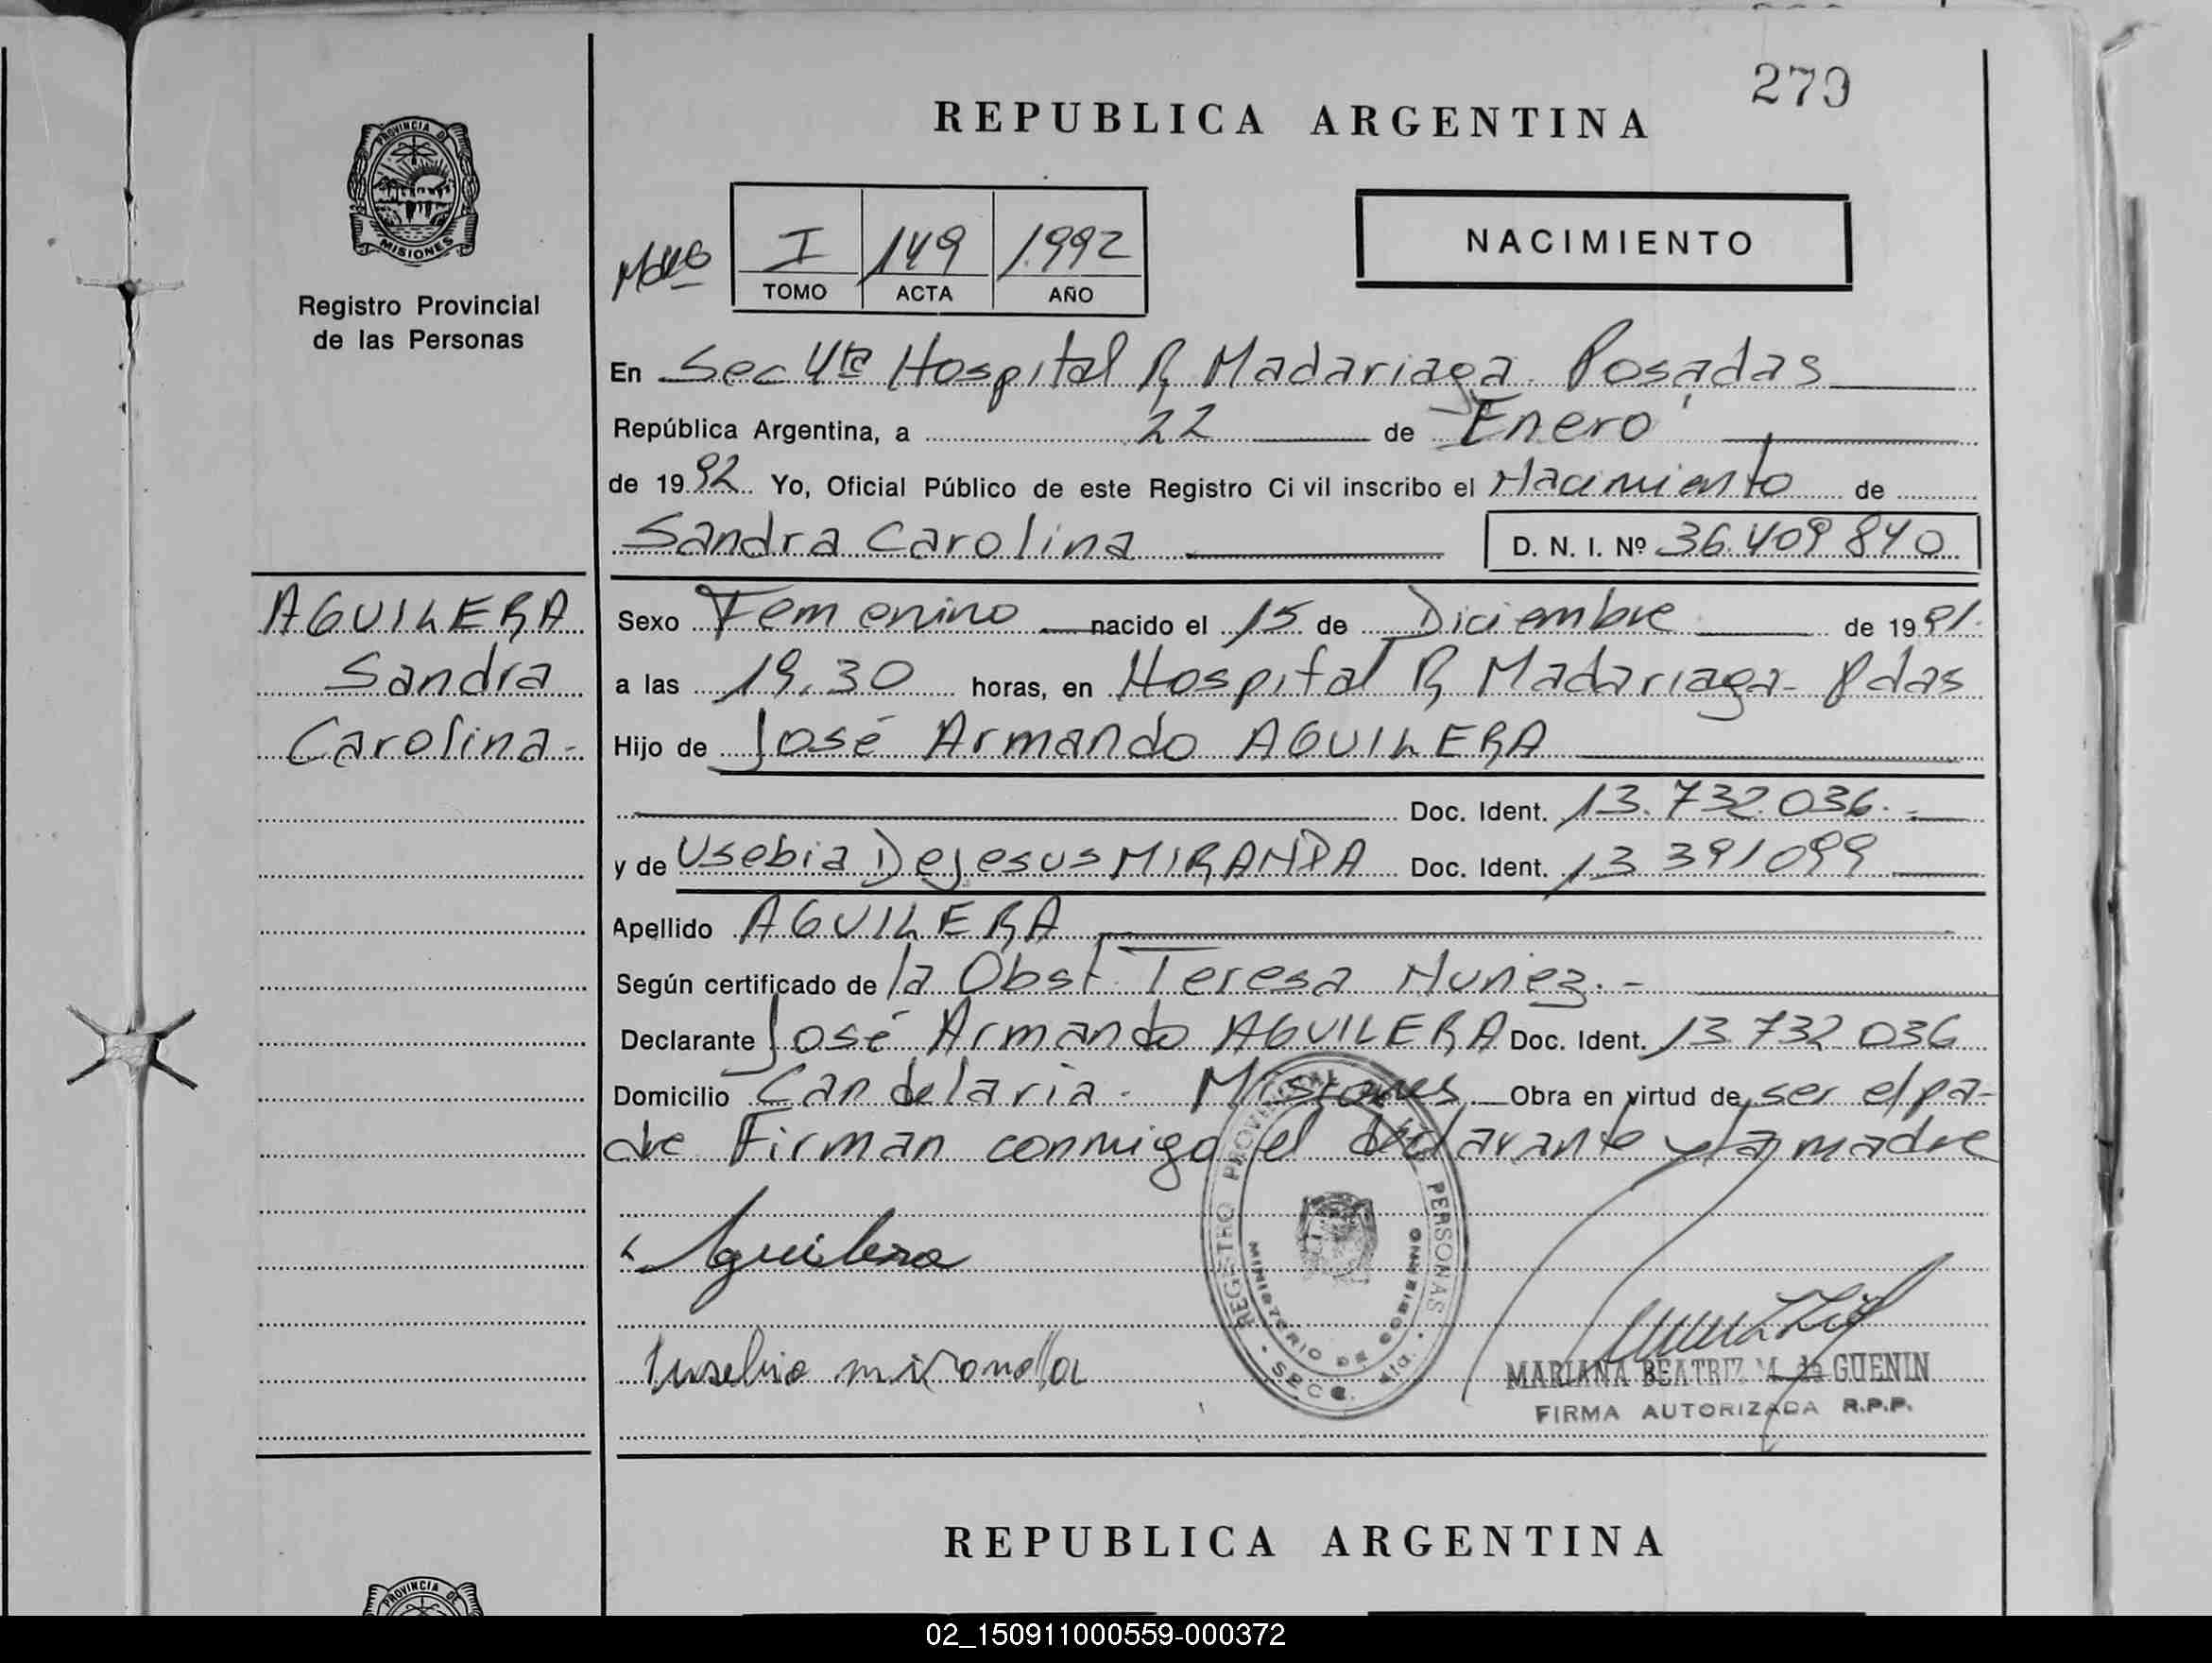 279
REPUBLICA ARGENTINA
PROVINCIA DE
MISIONES
Registro Provincial
de las Personas
I 149 1992
TOMO ACTA AÑO
NACIMIENTO
En Sec 4ta Hospital R Madariaga Posadas
República Argentina, a 22 de Enero
de 1992 Yo, Oficial Público de este Registro Civil inscribo el Nacimiento de
Sandra Carolina D. N. I. Nº 36.409.840
AGUILERA
Sandra
Carolina-
Sexo Femenino nacido el 15 de Diciembre de 1991.
a las 19.30 horas, en Hospital R Madariaga- Pdas
Hijo de José Armando AGUILERA
Doc. Ident. 13.732.036.-
y de Usebia DeJesus MIRANDA Doc. Ident. 13 391099
Apellido AGUILERA
Según certificado de la Obst. Teresa Nuñez.-
Declarante José Armando AGUILERA Doc. Ident. 13 732 036
Domicilio Candelaria - Misiones Obra en virtud de ser el pa-
dre Firman conmigo el declarante y la madre
Aguilera
REGISTRO PROVINCIAL DE LAS PERSONAS
MINISTERIO DE GOBIERNO
SECC. 4ta.
Eusebia miranda
MARIANA BEATRIZ M. de GUENIN
FIRMA AUTORIZADA R.P.P.
REPUBLICA ARGENTINA
PROVINCIA DE
02_150911000559-000372